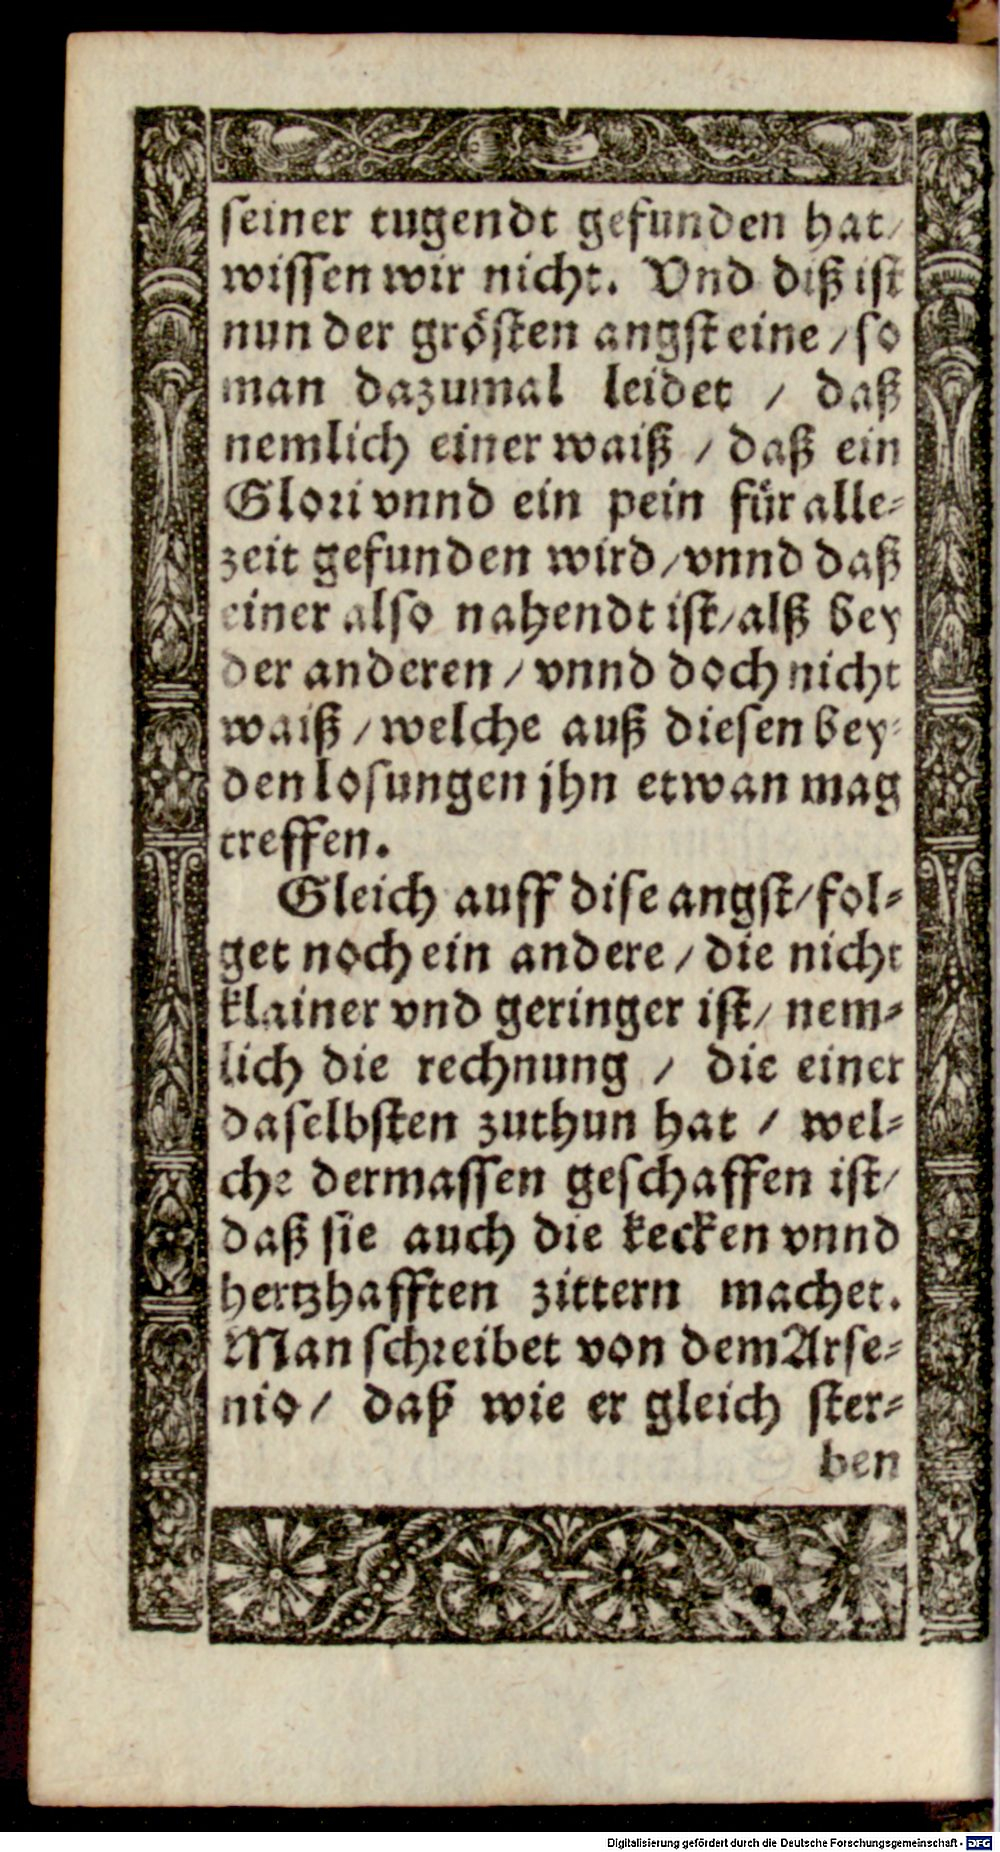 seiner tugendt gefunden hat/
wissen wir nicht. Vnd diß ist
nun der grösten angst eine / so
man dazumal leidet / daß
nemlich einer waiß / daß ein
Glori vnnd ein pein für alle-
zeit gefunden wird / vnnd daß
einer also nahendt ist / alß bey
der anderen / vnnd doch nicht
waiß / welche auß diesen bey-
den losungen jhn etwan mag
treffen.
Gleich auff dise angst / fol-
get noch ein andere / die nicht
klainer vnd geringer ist / nem-
lich die rechnung / die einer
daselbsten zuthun hat / wel-
che dermassen geschaffen ist/
daß sie auch die kecken vnnd
hertzhafften zittern machet.
Man schreibet von dem Arse-
nio / daß wie er gleich ster-
ben
Digitalisierung gefördert durch die Deutsche Forschungsgemeinschaft - DFG